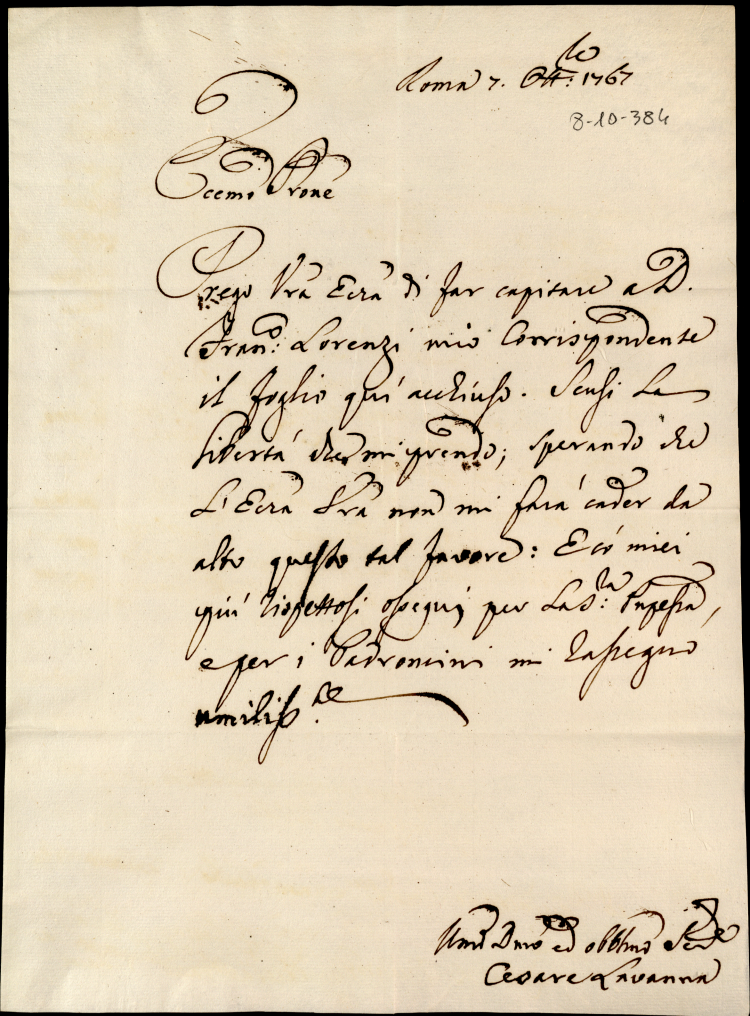 Roma 7. Ott:bre 1767
8-10-384
Eccmo Prone
Prego Vra Ecza di far capitare a D.
Franco: Lorenzi mio Corrispondente
il foglio qui acchiuso. Scusi La
libertà che mi prendo; sperando che
L'Ecza Vra non mi farà cader da
alto questo tal favore: E có miei
più rispettosi ossequj per La S:ra Pnpessa,
e per i Padroncini mi rassegno
umiliss:te
Umo Dmo ed obblmo
Cesare Lavanna